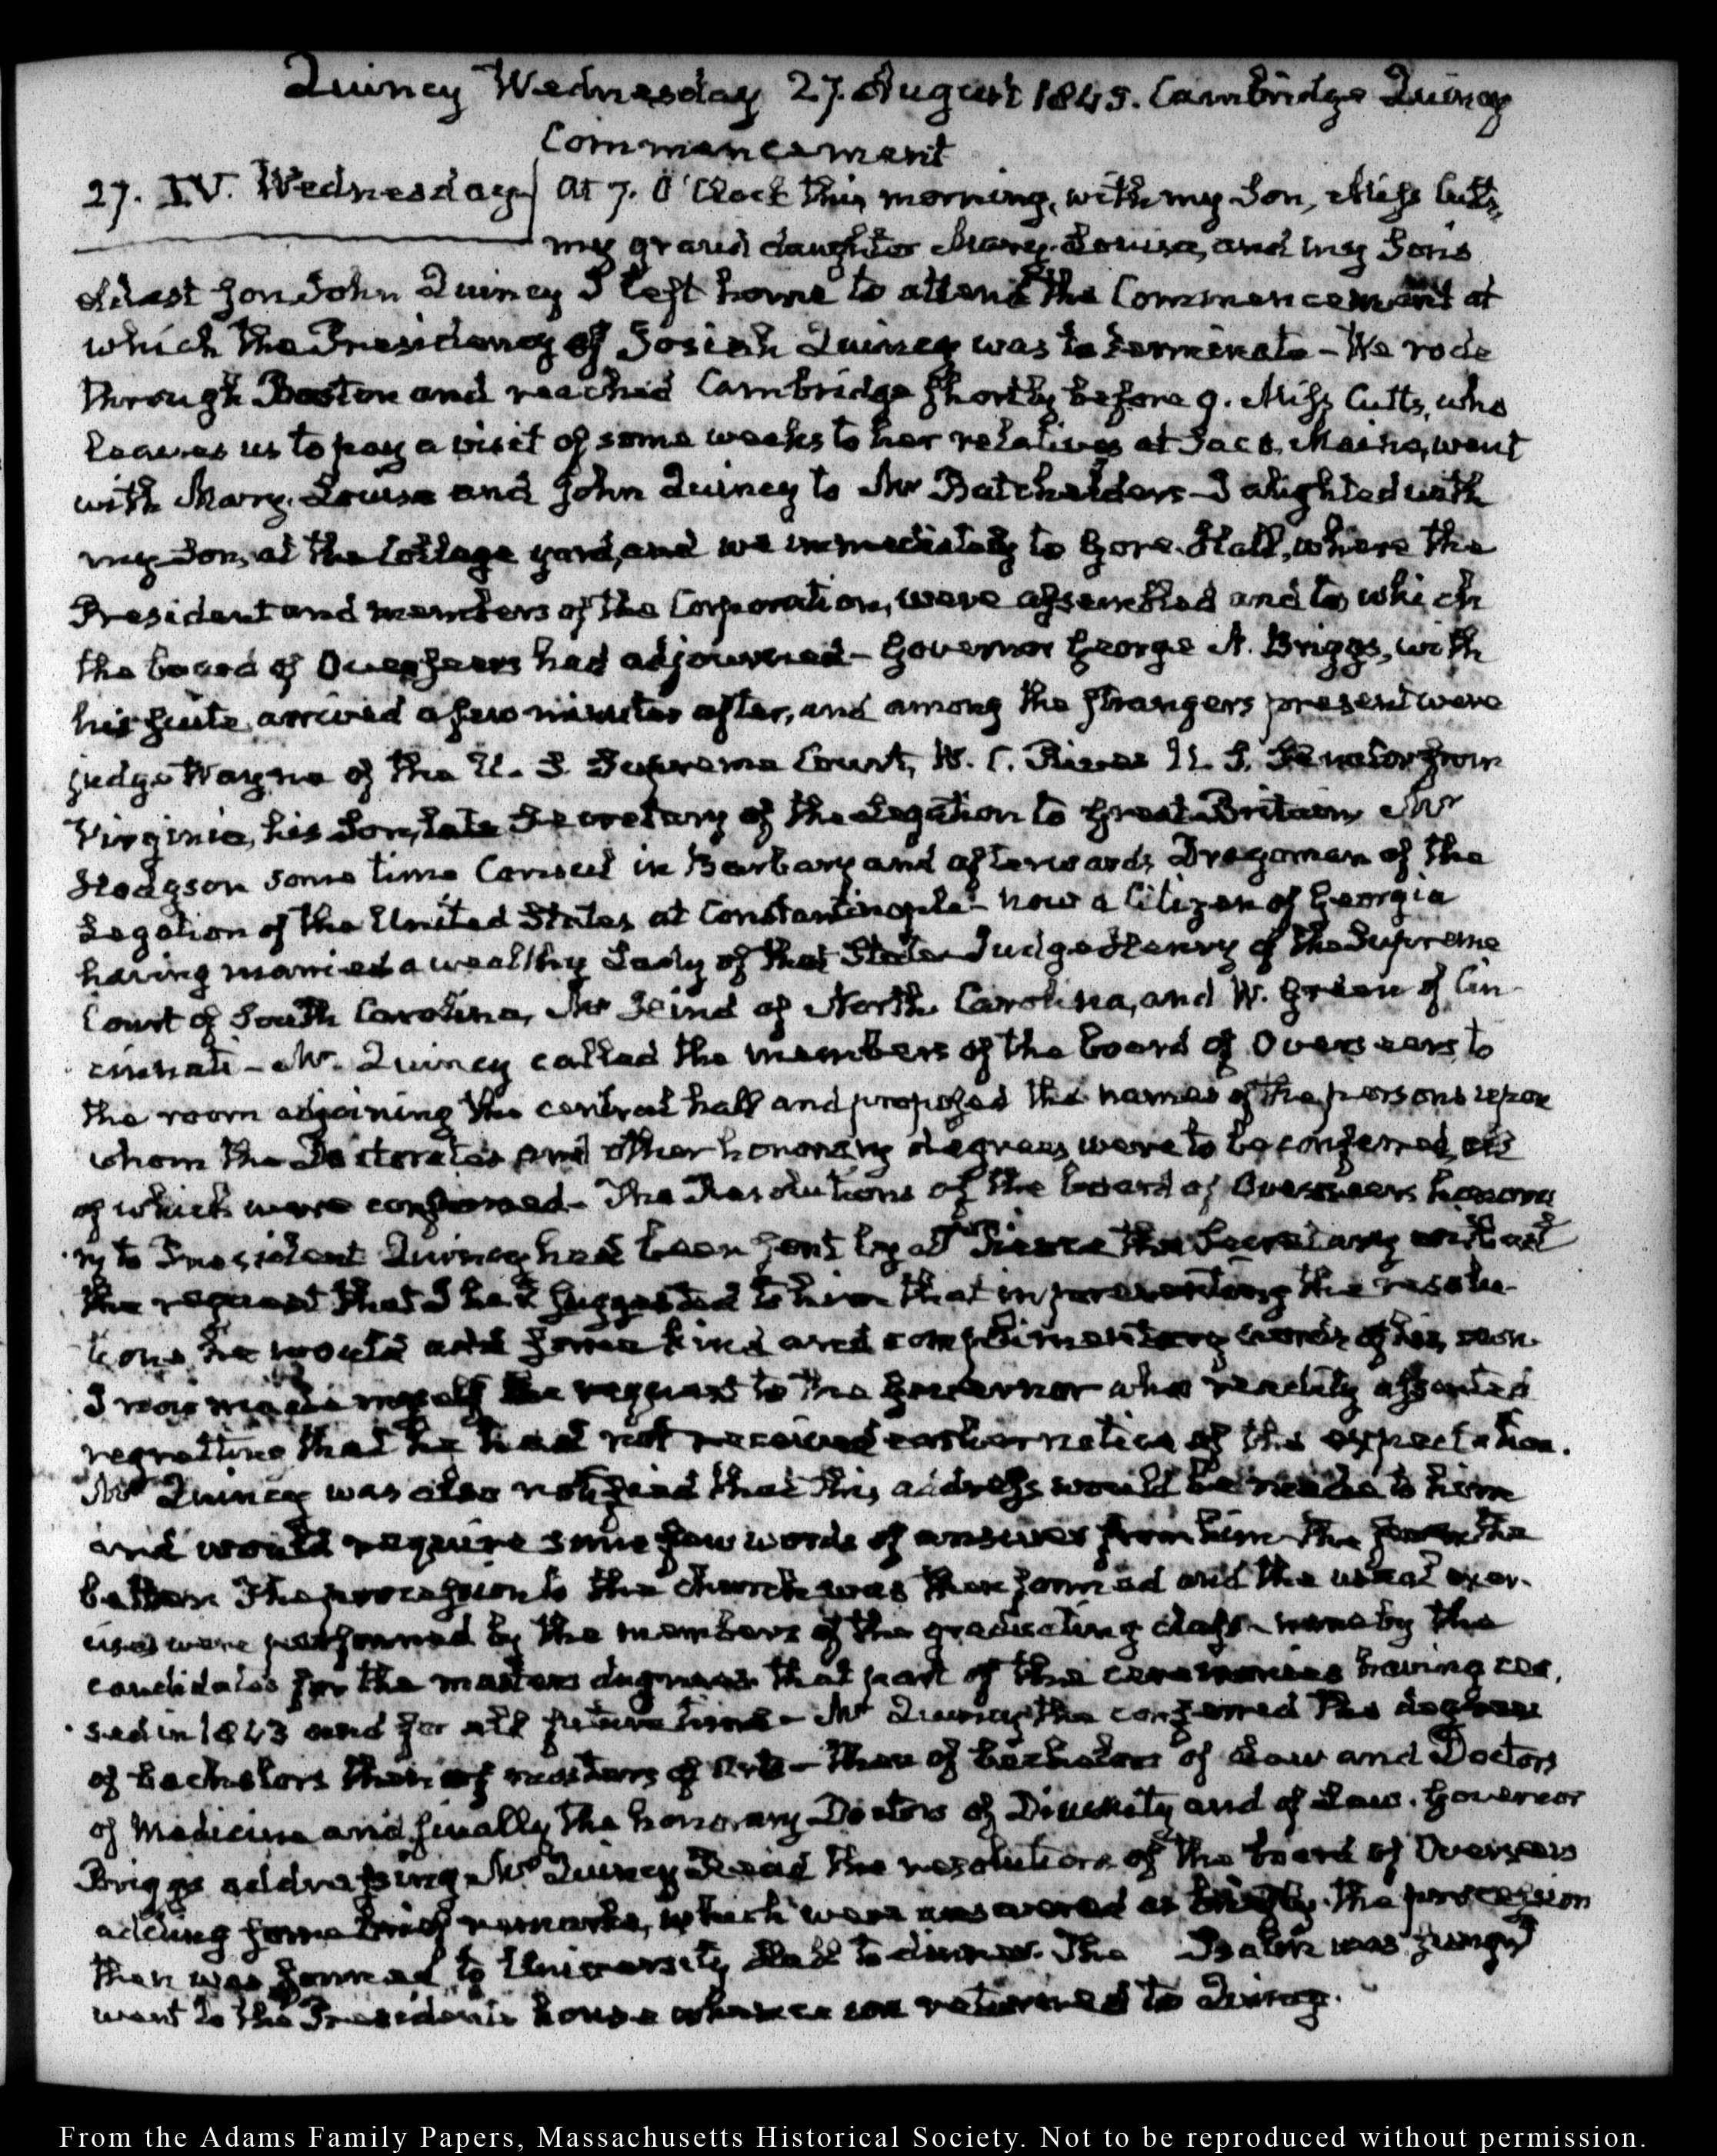 Quincy Wednesday 27. August 1845. Cambridge Quincy
Commencement
27. IV. Wednesday At 7. O'Clock this morning, with my Son, Miss Cutts,
my grand daughter Mary-Louisa, and my Sons
eldest son John Quincy I left home to attend the Commencement at
which the Presidency of Josiah Quincy was to terminate – We rode
through Boston and reached Cambridge shortly before 9. Miss Cutts, who
leaves us to pay a visit of some weeks to her relatives at Saco, Maine, went
with Mary-Louisa and John Quincy to Mr Batchelders – I alighted with
my Son, at the College yard, and we immediately to Gore-Hall, where the
President and members of the Corporation, were assembled and to which
the board of Overseers had adjourned – Governor George N. Briggs, with
his suite arrived a few minutes after, and among the strangers present were
judge Wayne of the U. S. Supreme Court, W. C. Rives U. S. Senator from
Virginia, his Son, late Secretary of the Legation to Great-Britain, Mr
Hodgson some time Consul in Barbary and afterwards Dragoman of the
Legation of the United States at Constantinople – now a Citizen of Georgia
having married a wealthy Lady of that State – Judge Henry of the Supreme
Court of South Carolina, Mr of North Carolina, and W. Green of Cin-
cinnati – Mr. Quincy called the members of the board of Overseers to
the room adjoining the central hall and proposed the names of the persons upon
whom the Doctorates and other honorary degrees were to be conferred, all
of which were confirmed – The Resolutions of the board of Overseers honora
ry to President Quincy had been sent by Dr Pierce the Secretary without
the request that I had suggested to him that in presenting the resolu-
tions he would add some kind and complimentary words of his own
I now made myself the request to the Governor who readily assented
regretting that he had not received earlier notice of the expectation.
Mr Quincy was also notified that this address would be made to him
and would require some few words of answer from him – the the
better. The procession to the church was then formed and the usual exer-
cises were performed by the members of the graduating class – none by the
candidates for the masters degrees that part of the ceremonies having cea,
sed in 1843 and for all future time – Mr Quincy then conferred the degrees
of bachelors then of masters of Arts – then of bachelors of Law and Doctors
of Medicine and finally the honorary Doctors of Divinity and of Law. Governor
Briggs addressing Mr Quincy Read the resolutions of the board of Overseers
adding some brief remarks, which were answered as briefly. The procession
then was formed to University Hall to dinner. The Psalm was sung I
went to the Presidents house whence we returned to Quincy.
From the Adams Family Papers, Massachusetts Historical Society. Not to be reproduced without permission.